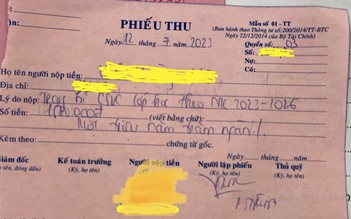 PHIẾU THU
Mẫu số 01 - TT
(Ban hành theo Thông tư số:200/2014/TT-BTC
Ngày 22/12/2014 của Bộ Tài Chính)
Ngày 12 tháng 7 năm 2023
Quyển số: 03
Số:
Nợ:
Có:
Họ tên người nộp tiền:
Địa chỉ:
Lý do nộp: CSVC lớp học theo NK 2022-2026
Số tiền: (viết bằng chữ):
Một triệu năm trăm ngàn /.
Kèm theo: chứng từ gốc.
Ngày tháng năm
Giám đốc Kế toán trưởng Người nộp tiền Người lập phiếu Thủ quỹ
tên, đóng dấu) (Ký, họ tên) (Ký, họ tên) (Ký, họ tên)